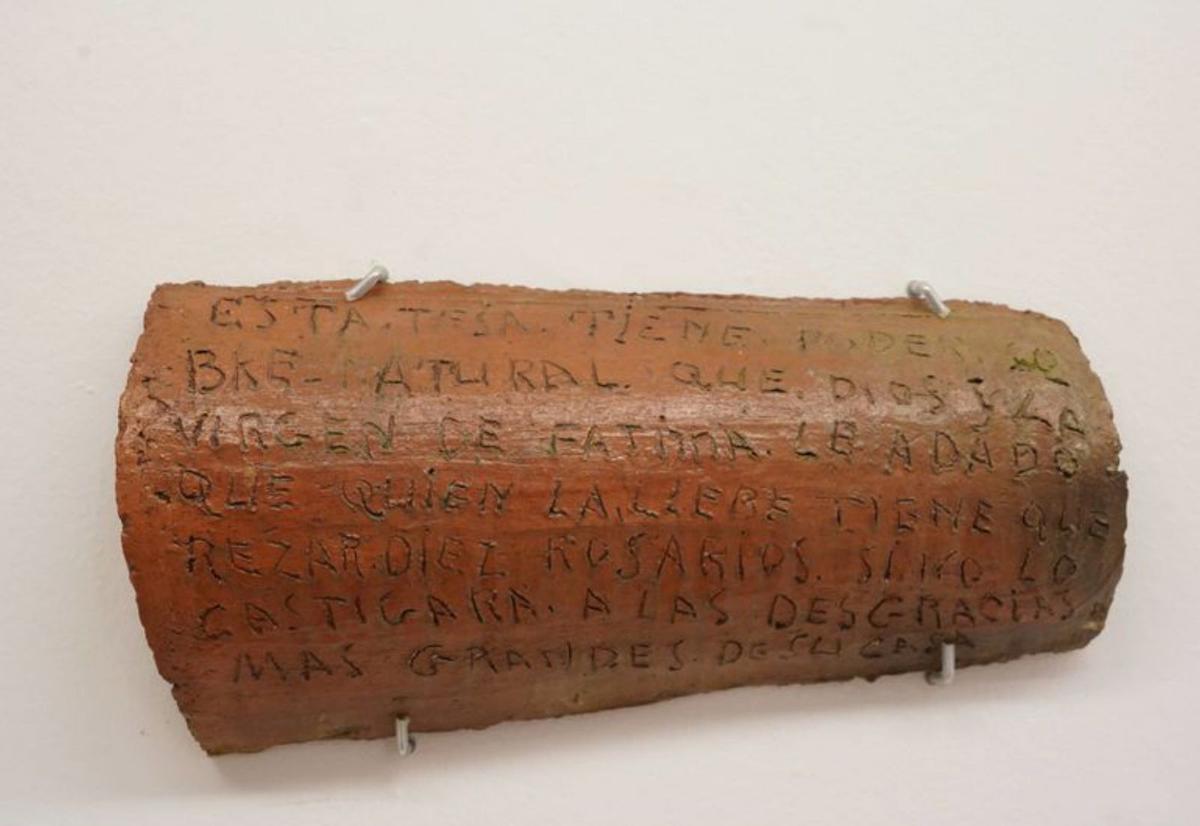 ESTA. TESA. TIENE. PODER. SO
BRE-NATURAL. QUE. DIOS Y LA
VIRGEN DE FATIMA. LE ADADO
QUE QUIEN LA.LLEBE TIENE QUE
REZAR.DIEZ ROSARIOS. SI.NO LO
CASTIGARA. A LAS DESGRACIAS
MAS GRANDES. DE SU CASA